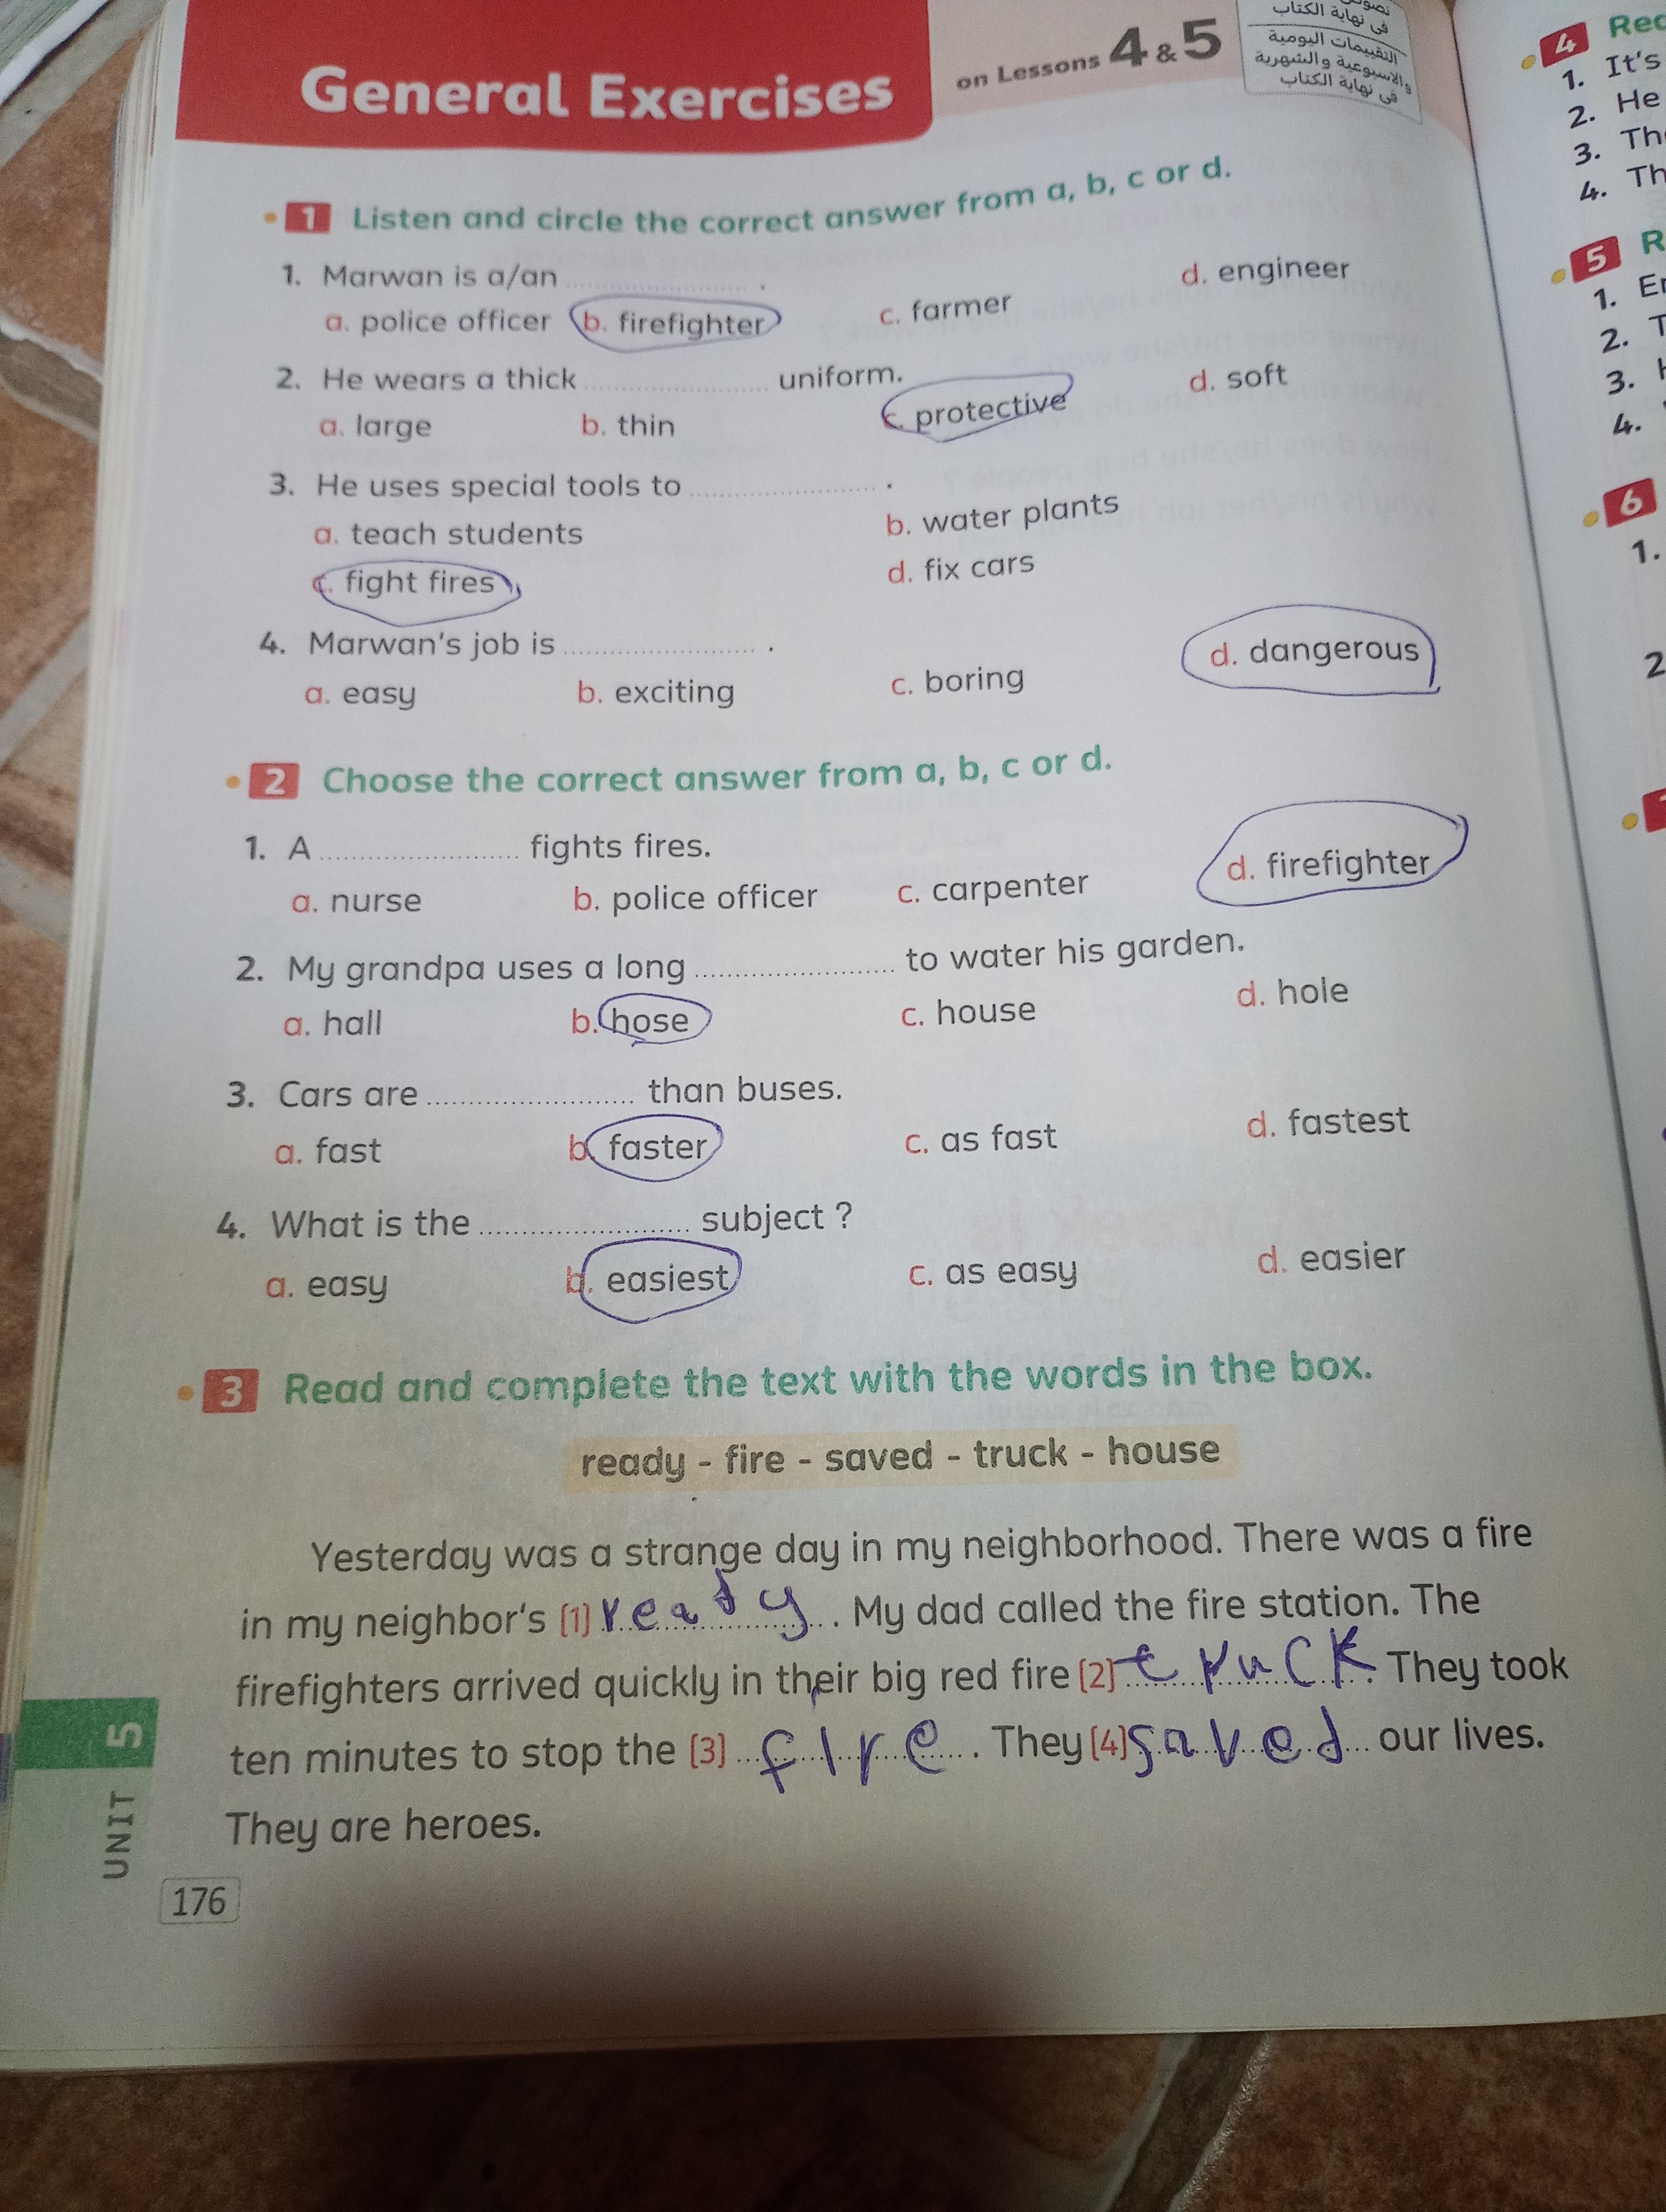 نهاية الكتاب
التقييمات اليومية
والأسبوعية والشهرية
فى نهاية الكتاب
General Exercises on Lessons 4 & 5
1 Listen and circle the correct answer from a, b, c or d.
1. Marwan is a/an .................... .
a. police officer b. firefighter c. farmer d. engineer
2. He wears a thick .................... uniform.
a. large b. thin c. protective d. soft
3. He uses special tools to .................... .
a. teach students b. water plants
c. fight fires d. fix cars
4. Marwan's job is .................... .
a. easy b. exciting c. boring d. dangerous
2 Choose the correct answer from a, b, c or d.
1. A .................... fights fires.
a. nurse b. police officer c. carpenter d. firefighter
2. My grandpa uses a long .................... to water his garden.
a. hall b. hose c. house d. hole
3. Cars are .................... than buses.
a. fast b. faster c. as fast d. fastest
4. What is the .................... subject ?
a. easy b. easiest c. as easy d. easier
3 Read and complete the text with the words in the box.
ready - fire - saved - truck - house
Yesterday was a strange day in my neighborhood. There was a fire
in my neighbor's (1) ready . My dad called the fire station. The
firefighters arrived quickly in their big red fire (2) truck . They took
ten minutes to stop the (3) fire . They (4) saved our lives.
They are heroes.
UNIT 5
176
4
1. It's
2. He
3.
4.
5
1.
2.
3.
4.
6
1.
2